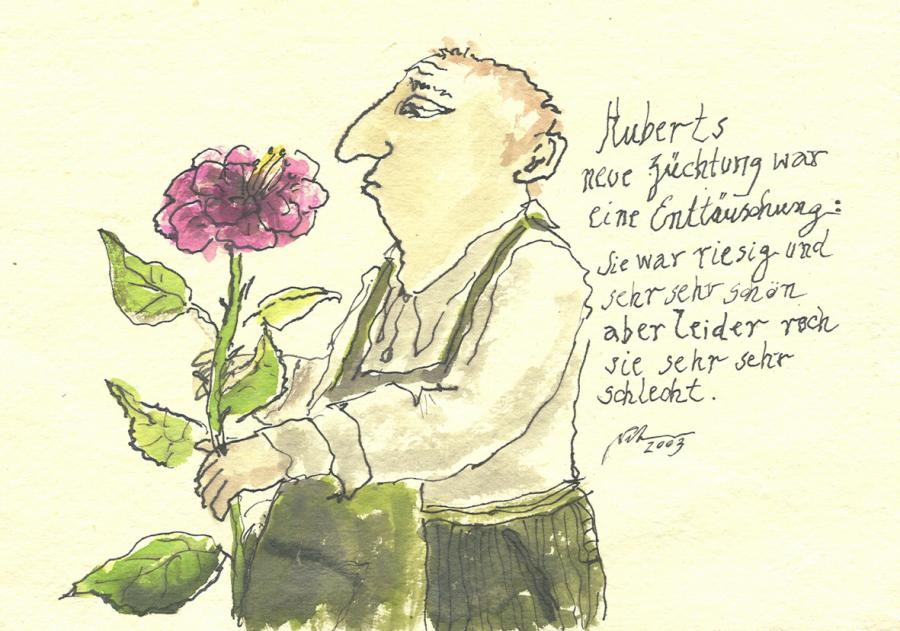 Huberts
neue Züchtung war
eine Enttäuschung:
sie war riesig und
sehr sehr schön
aber leider roch
sie sehr sehr
schlecht.
2003